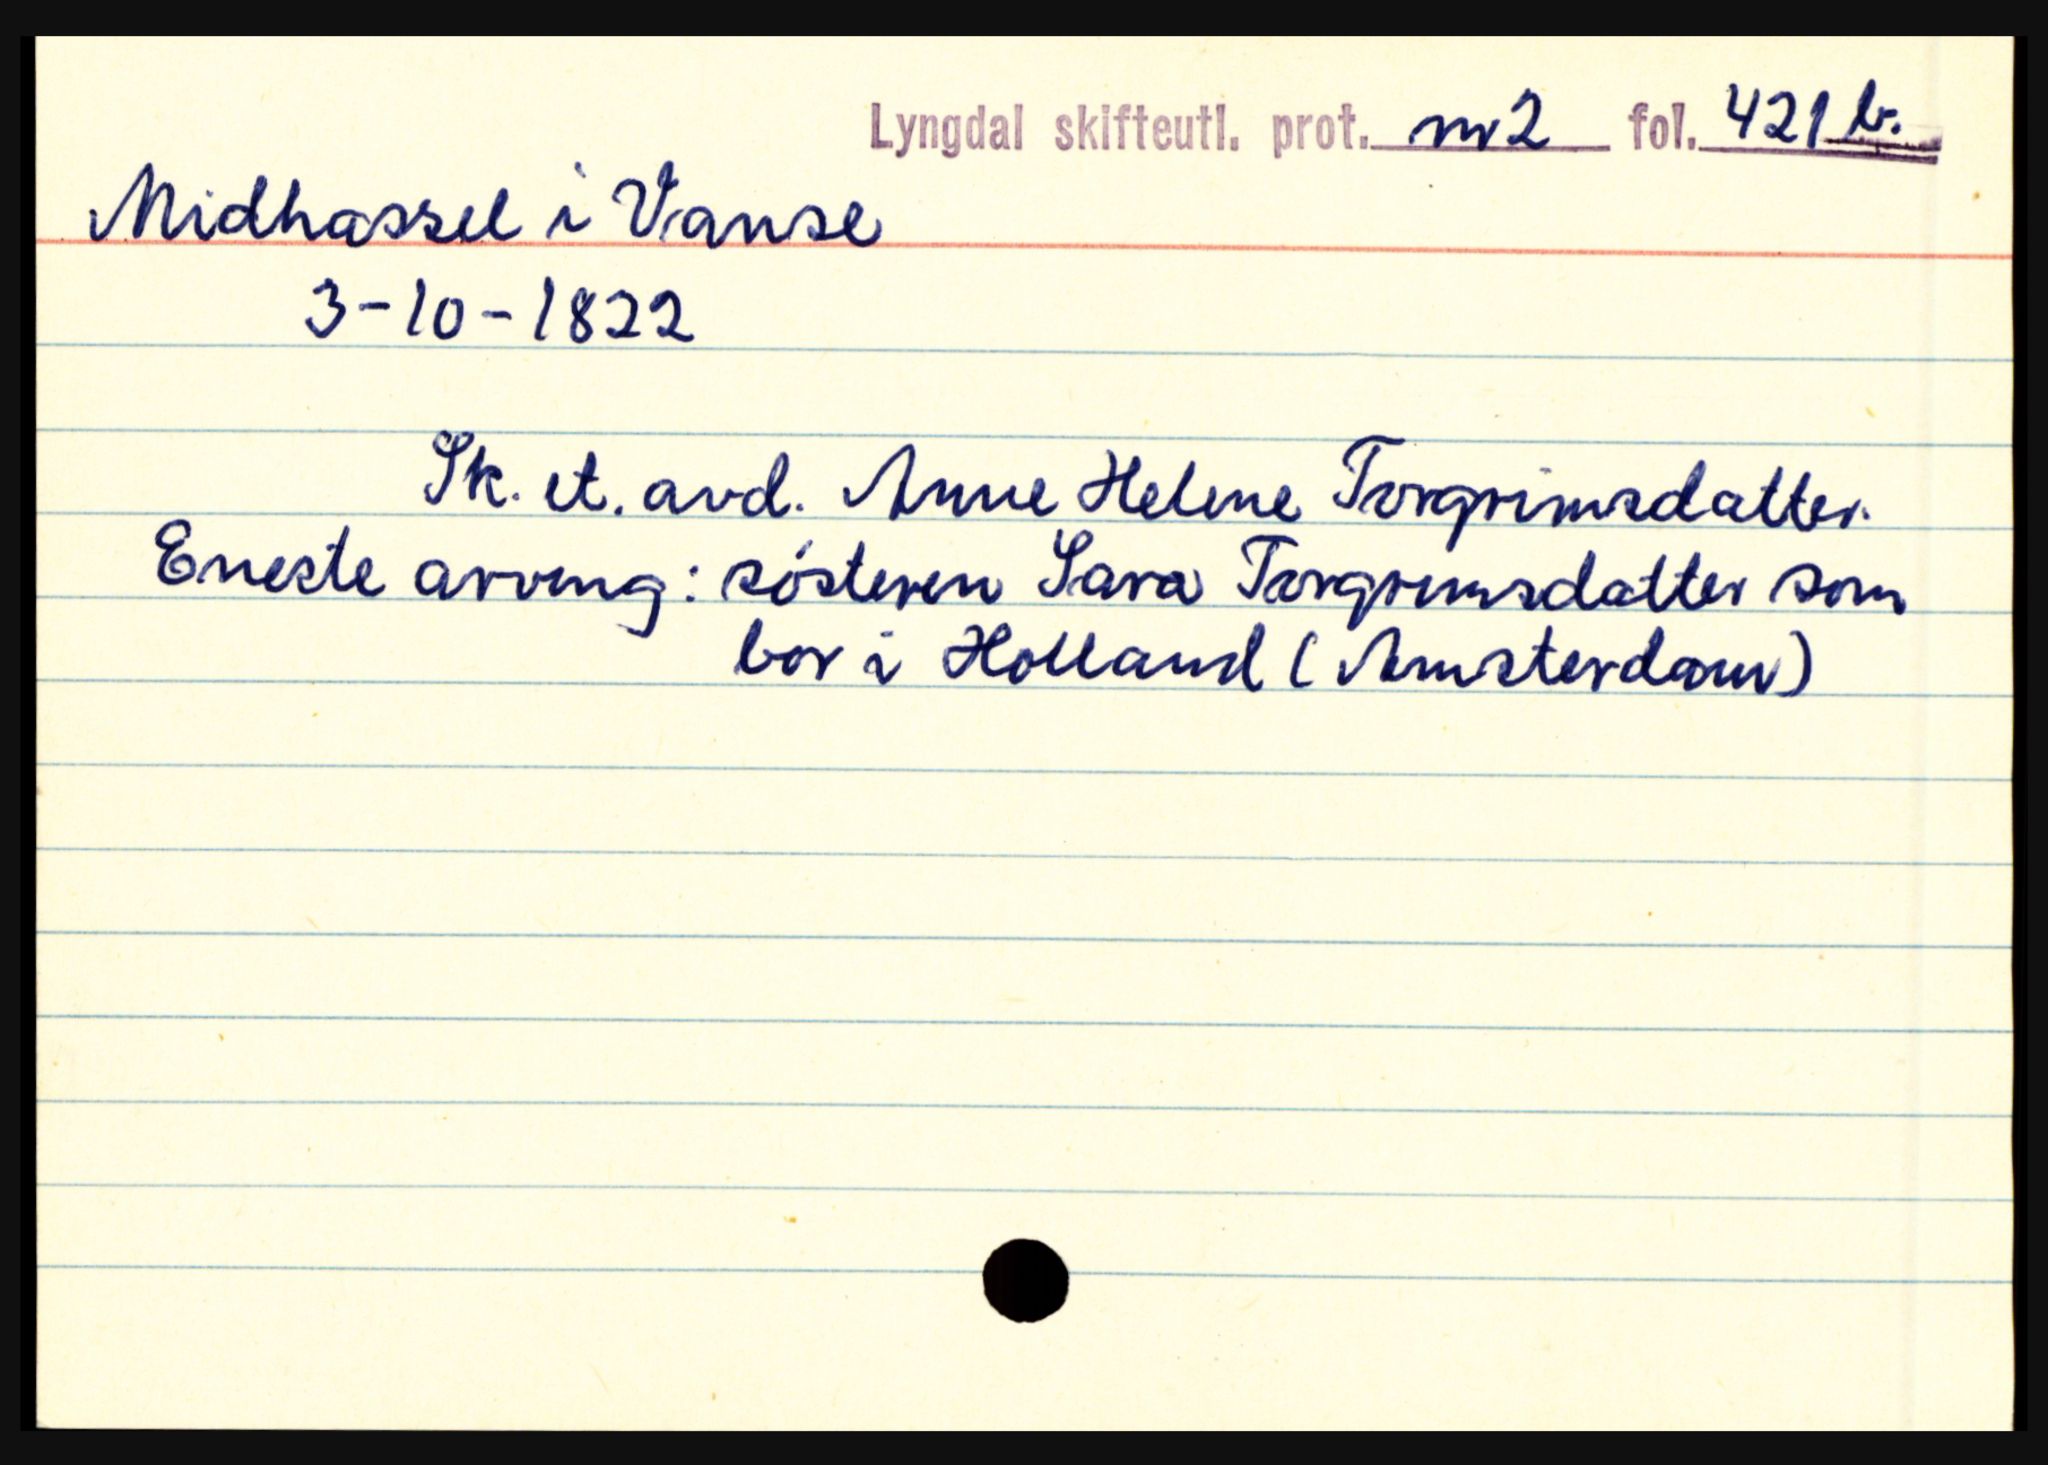 Lyngdal skifteutl. prot. nr 2 fol. 421 b.
Midhassel i Vanse
3-10-1822
Sk. et. avd. Anne Helene Torgrimsdatter.
Eneste arving: søsteren Sara Torgrimsdatter som
bor i Holland (Amsterdam)